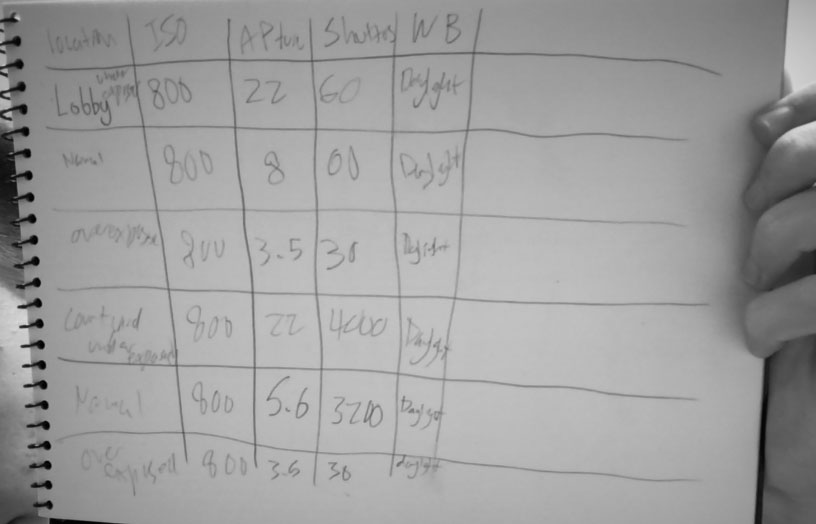 location ISO APture Shutter WB
Lobby under exposed 800 22 60 Daylight
Normal 800 8 60 Daylight
overexpose 800 3.5 30 Daylight
Courtyard under exposed 800 22 4000 Daylight
Normal 800 5.6 3200 Daylight
over exposed 800 3.5 30 daylight